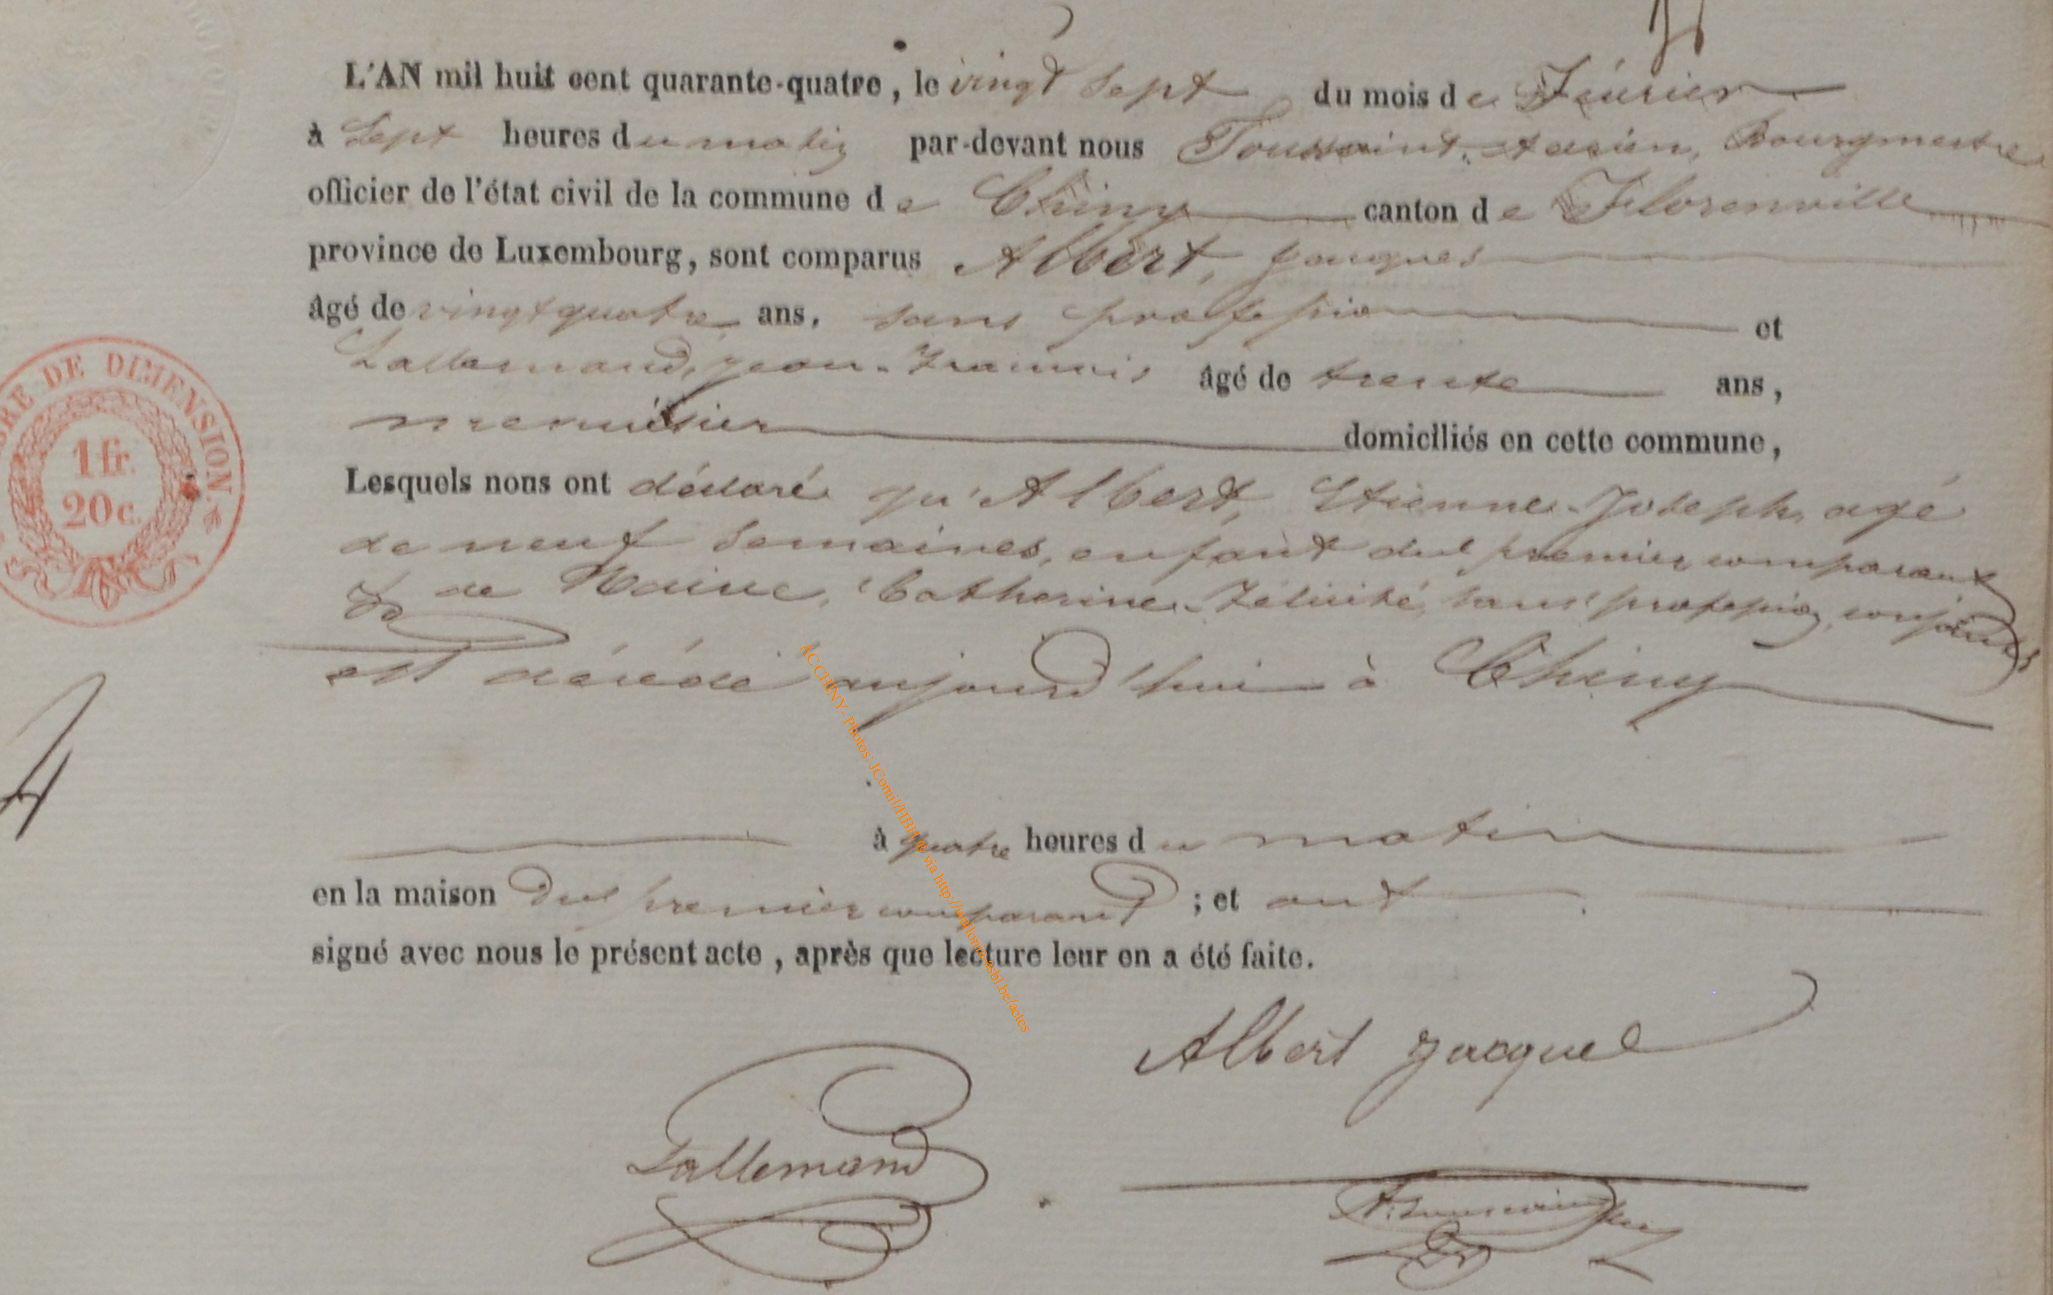 L'AN mil huit cent quarante-quatre, le vingt sept du mois de Février
à sept heures du matin par-devant nous Toussaint, Bourgmestre
officier de l'état civil de la commune de Chiny canton de Florenville
province de Luxembourg, sont comparus Albert, Jacques
âgé de vingt quatre ans, sans profession et
Lallemand, Jean-François âgé de trente ans,
menuisier domiciliés en cette commune,
Lesquels nous ont déclaré qu'Albert, Etienne-Joseph, agé
de neuf semaines, enfant dud premier comparant
& de Maire, Catherine-Félicité, sans profession, conjoints
est décédé aujourd'hui à Chiny
à quatre heures du matin
en la maison dud premier comparant ; et ont
signé avec nous le présent acte, après que lecture leur en a été faite.
Albert Jacque
Lallemand
TIMBRE DE DIMENSION
1 fr.
20 c.
AC CHINY - Photos
4